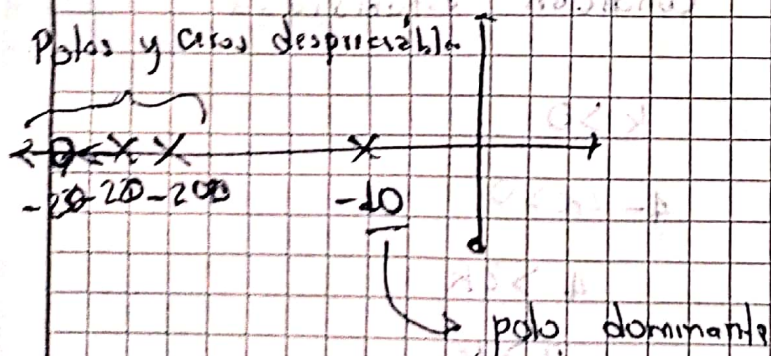 Polos y ceros despreciable
-20 -200
-10
polo dominante